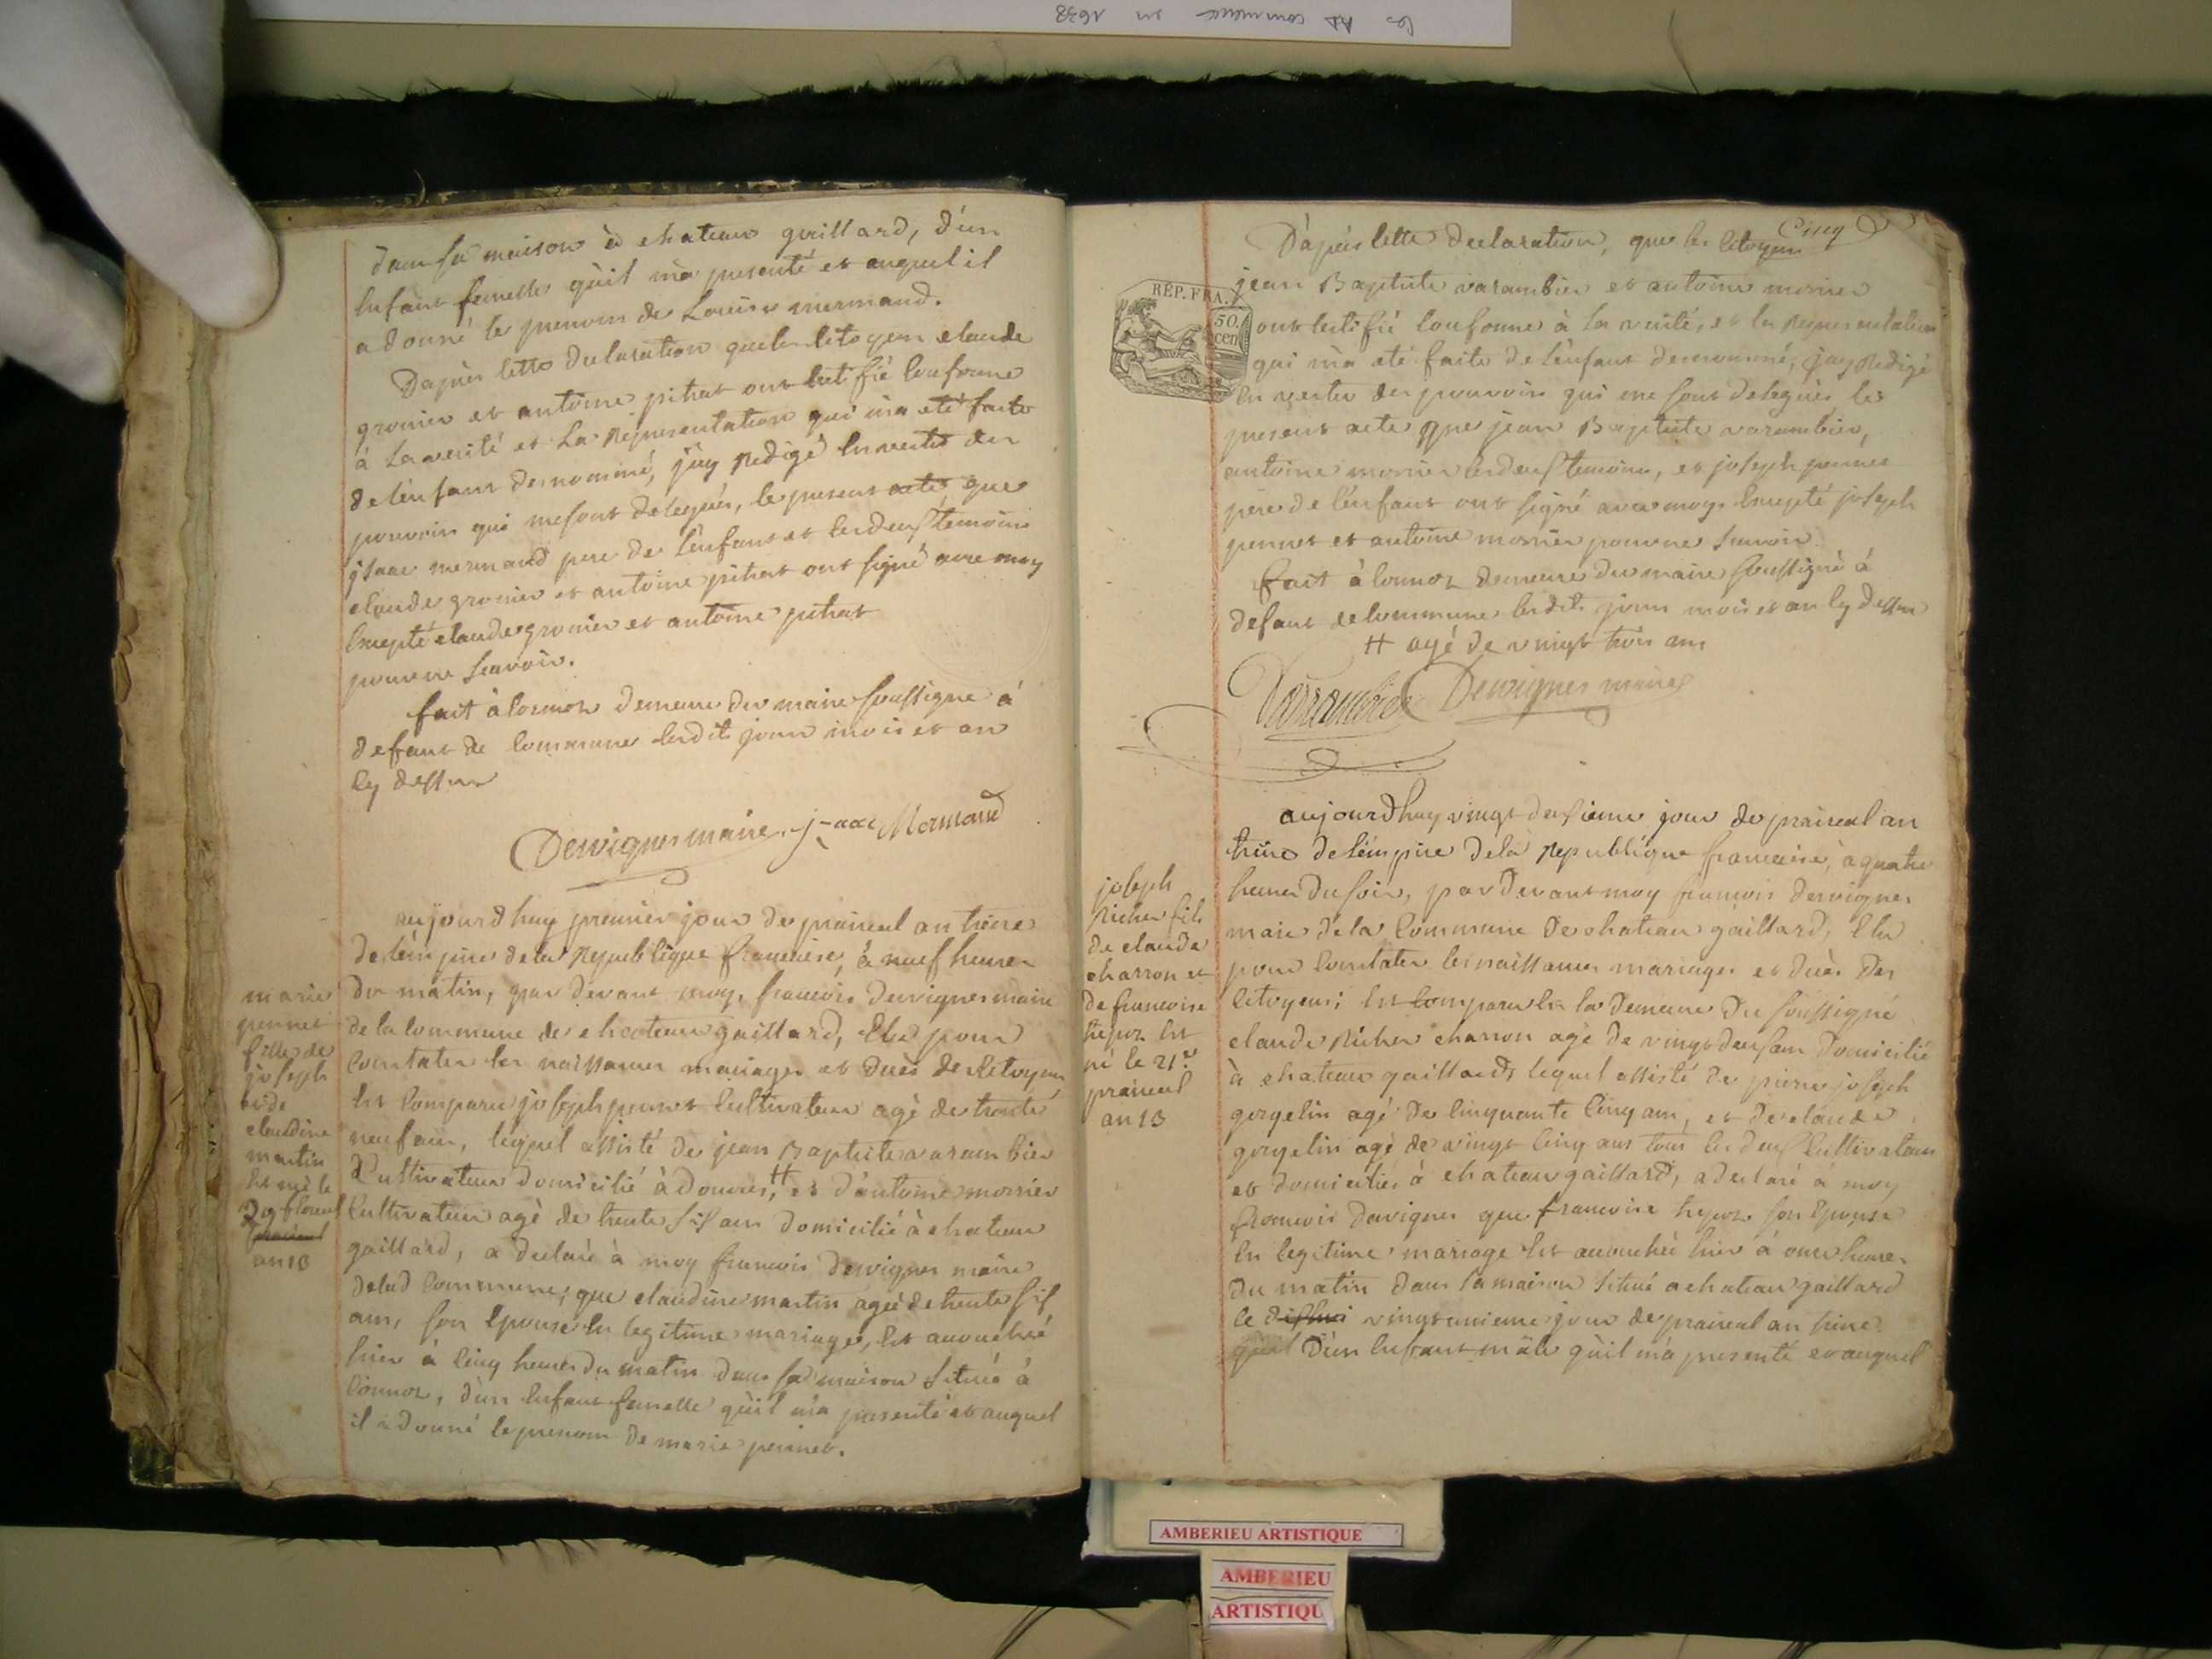 les AD commence en 1638
dans sa maison à chateau gaillard, d'un
enfant femelle qu'il m'a presenté et auquel il
a donné le prenom de Louise mermand.
Dapres cette declaration que les citoyen claude
gronier et antoine pitrat ont certifié conforme
à la verité et la representation qui m'a eté faite
de l'enfant denommé, j'ay redigé en vertu des
pouvoirs qui me sont delegués, le present acte que
jsaac mermand pere de l'enfant et les deux temoins
claude gronier et antoine pitrat ont signé avec moy
excepté claude gronier et antoine pitrat
pour ne scavoir.
fait à cormoz demeure du maire soussigné à
defaut de commune lesdits jour mois et an
cy dessus
Dervignes maire jsaac Mermand
marie
perret
fille de
joseph
et de
claudine
martin
est née le
floreal
praireal
an 13
aujourdhuy premier jour de praireal an treize
de l'empire de la republique francaise, à neuf heures
du matin, par devant moy, francois dervignes maire
de la commune de chateau gaillard, élu pour
constater les naissances mariages et decès des citoyens
est comparu joseph perret cultivateur agé de trente
neuf ans, lequel assisté de jean Baptiste varambier
Cultivateur domicilié à douvres, # et d'antoine mornier
cultivateur agé de trente six ans domicilié à chateau
gaillard, a declaré à moy francois dervignes maire
de lad commune, que claudine martin ageé de trente six
ans, son epouse en legitime mariage, est accouchée
hier à cinq heures du matin dans sa maison située à
cormoz, d'un enfant femelle qu'il m'a presenté et auquel
il a donné le prenom de marie perret.
Cinq
D'apres cette declaration, que les citoyen
RÉP. FRA.
50.
cen
jean Baptiste varambier et antoine mornier
ont certifié conforme à la verité, et la representation
qui m'a eté faite de l'enfant denommé, j'ay redigé
en vertu des pouvoirs qui me sont delegués le
present acte que jean Baptiste varambier,
antoine mornier les deux temoins, et joseph perret
pere de l'enfant ont signé avec moy excepté joseph
perret et antoine mornier pour ne scavoir
fait à cormoz demeure du maire soussigné à
defaut de commune lesdits jour mois et an cy dessus
# agé de vingt trois ans
Varrambier Dervignes maire
joseph
richer fils
de claude
charron et
de francoise
trepoz est
né le 21e
praireal
an 13
aujourdhuy vingt deuxieme jour de praireal an
treize de l'empire de la republique francaise, à quatre
heures du soir, par devant moy francois dervignes
maire de la commune de chateau gaillard, élu
pour constater les naissances mariages et decès des
citoyens, est comparu en la demeure du soussigné
claude richer charron agé de vingt deux ans domicilié
à chateau gaillard, lequel assisté de pierre joseph
gorgelin agé de cinquante cinq ans, et de claude
gorgelin agé de vingt cinq ans tous les deux cultivateurs
et domiciliés à chateau gaillard, a declaré à moy
francois dervignes que francoise trepoz son epouse
en legitime mariage est accouchée hier à onze heures
du matin dans sa maison située a chateau gaillard
le vingt unieme jour de praireal an treize
D'un enfant mâle qu'il m'a presenté et auquel
AMBERIEU ARTISTIQUE
AMBERIEU
ARTISTIQU